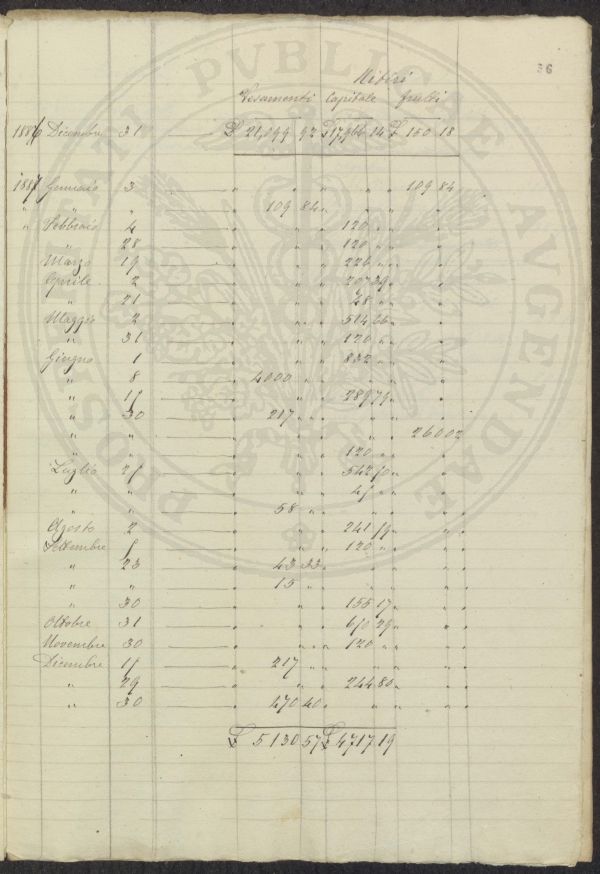 36
Ritiri
Versamenti Capitale frutti
1886 Dicembre 31 £ 21,199 92 £ 17,966 14 £ 150 18
1887 Gennaio 3 " " " " " 109 84
" " " 109 84 " " " "
" Febbraio 4 " " " 120 " " "
" 28 " " " 120 " " "
Marzo 19 " " " 226 " " "
Aprile 2 " " " 207 39 " "
" 21 " " " 48 " " "
Maggio 2 " " " 504 66 " "
" 31 " " " 120 " " "
Giugno 1 " " " 832 " " "
" 8 4000 " " " " "
" 15 " " " 289 79 " "
" 30 217 " " " " "
" " " " " " " 260 02
" " " " " 120 " " "
Luglio 25 " " " 542 50 " "
" " " " " 45 " " "
" " 58 " " " " "
Agosto 2 " " " 241 59 " "
Settembre 5 " " " 120 " " "
" 23 43 33 " " " "
" " 15 " " " " "
" 30 " " " 155 17 " "
Ottobre 31 " " " 650 29 " "
Novembre 30 " " " 120 " " "
Dicembre 15 217 " " " " "
" 29 " " " 244 80 " "
" 30 470 40 " " " "
£ 5130 57 £ 4717 19
PROSPERITATI PUBLICAE AUGENDAE